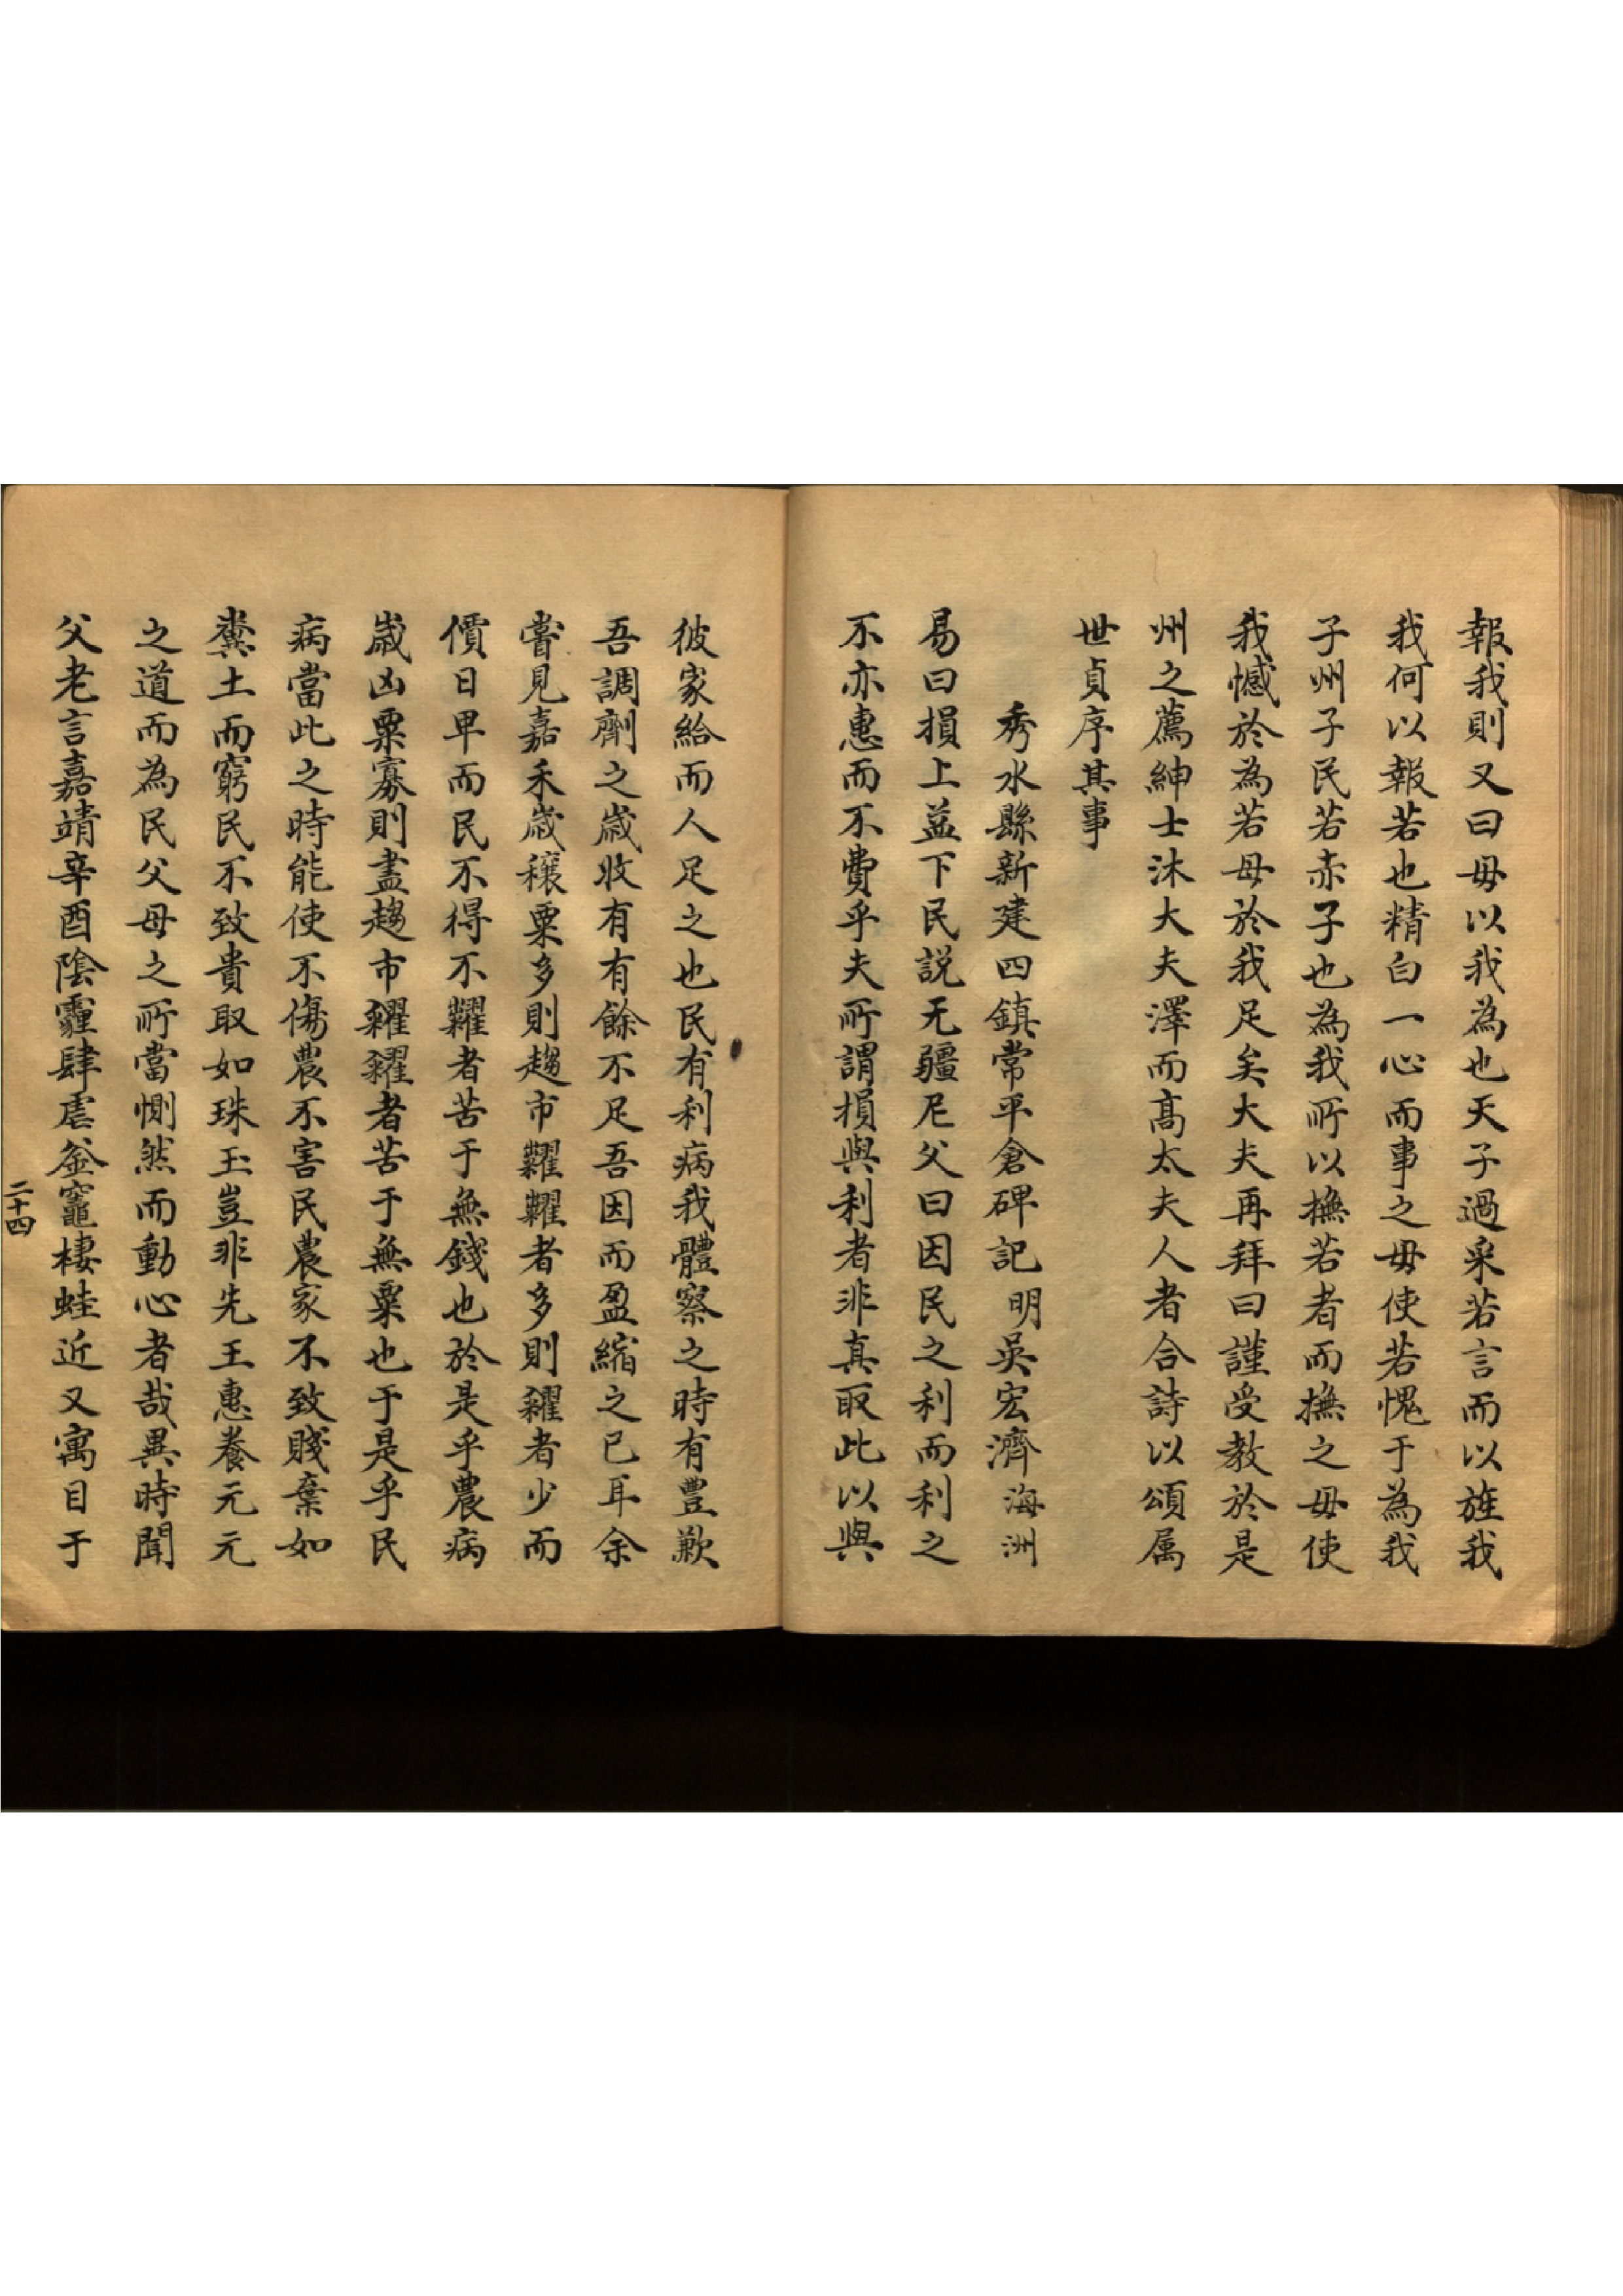 報我則又曰毋以我為也天子過采若言而以旌我
我何以報若也精白一心而事之毋使若愧于為我
子州子民若赤子也為我所以撫若者而撫之毋使
我憾於為若母於我足矣大夫再拜曰謹受教於是
州之薦紳士沐大夫澤而高太夫人者合詩以頌属
世貞序其事
秀水縣新建四鎮常平倉碑記 明吳宏濟海洲
易曰損上益下民説无疆尼父曰因民之利而利之
不亦惠而不費乎夫所謂損與利者非真取此以與
彼家給而人足之也民有利病我體察之時有豊歉
吾調劑之歲收有有餘不足吾因而盈縮之已耳余
嘗見嘉禾歲穰粟多則趨市糶糶者多則糴者少而
價日卑而民不得不糶者苦于無錢也於是乎農病
歲凶粟寡則盡趨市糴糴者苦于無粟也于是乎民
病當此之時能使不傷農不害民農家不致賤棄如
糞土而窮民不致貴取如珠玉豈非先王惠養元元
之道而為民父母之所當惻然而動心者哉異時聞
父老言嘉靖辛酉陰霾肆虐釜竈棲蛙近又寓目于
二十四